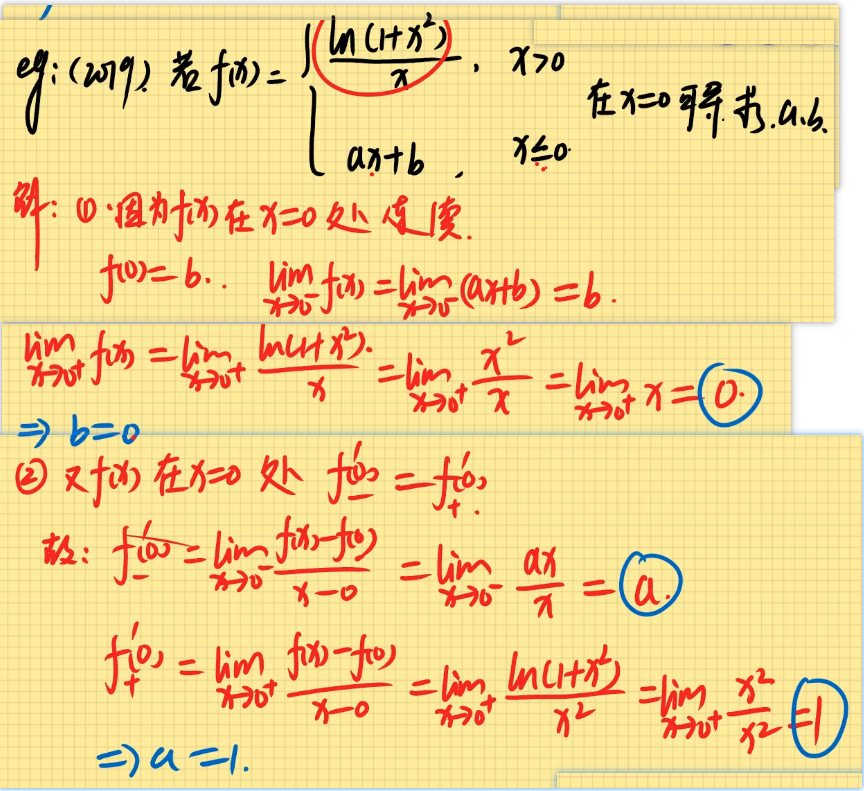 eg:(2019). 若 f(x)= { ln(1+x²)/x , x>0 在x=0可导.求.a.b.
ax+b , x≤0.
解: ① 因为f(x)在x=0处连续.
f(0)=b.. lim x→0⁻ f(x) = lim x→0⁻ (ax+b) = b.
lim x→0⁺ f(x) = lim x→0⁺ ln(1+x²)/x = lim x→0⁺ x²/x = lim x→0⁺ x = 0.
⇒ b=0
② 又f(x)在x=0处 f'₋(0) = f'₊(0).
故: f'₋(0) = lim x→0⁻ (f(x)-f(0))/(x-0) = lim x→0⁻ ax/x = a.
f'₊(0) = lim x→0⁺ (f(x)-f(0))/(x-0) = lim x→0⁺ ln(1+x²)/x² = lim x→0⁺ x²/x² = 1
⇒ a=1.